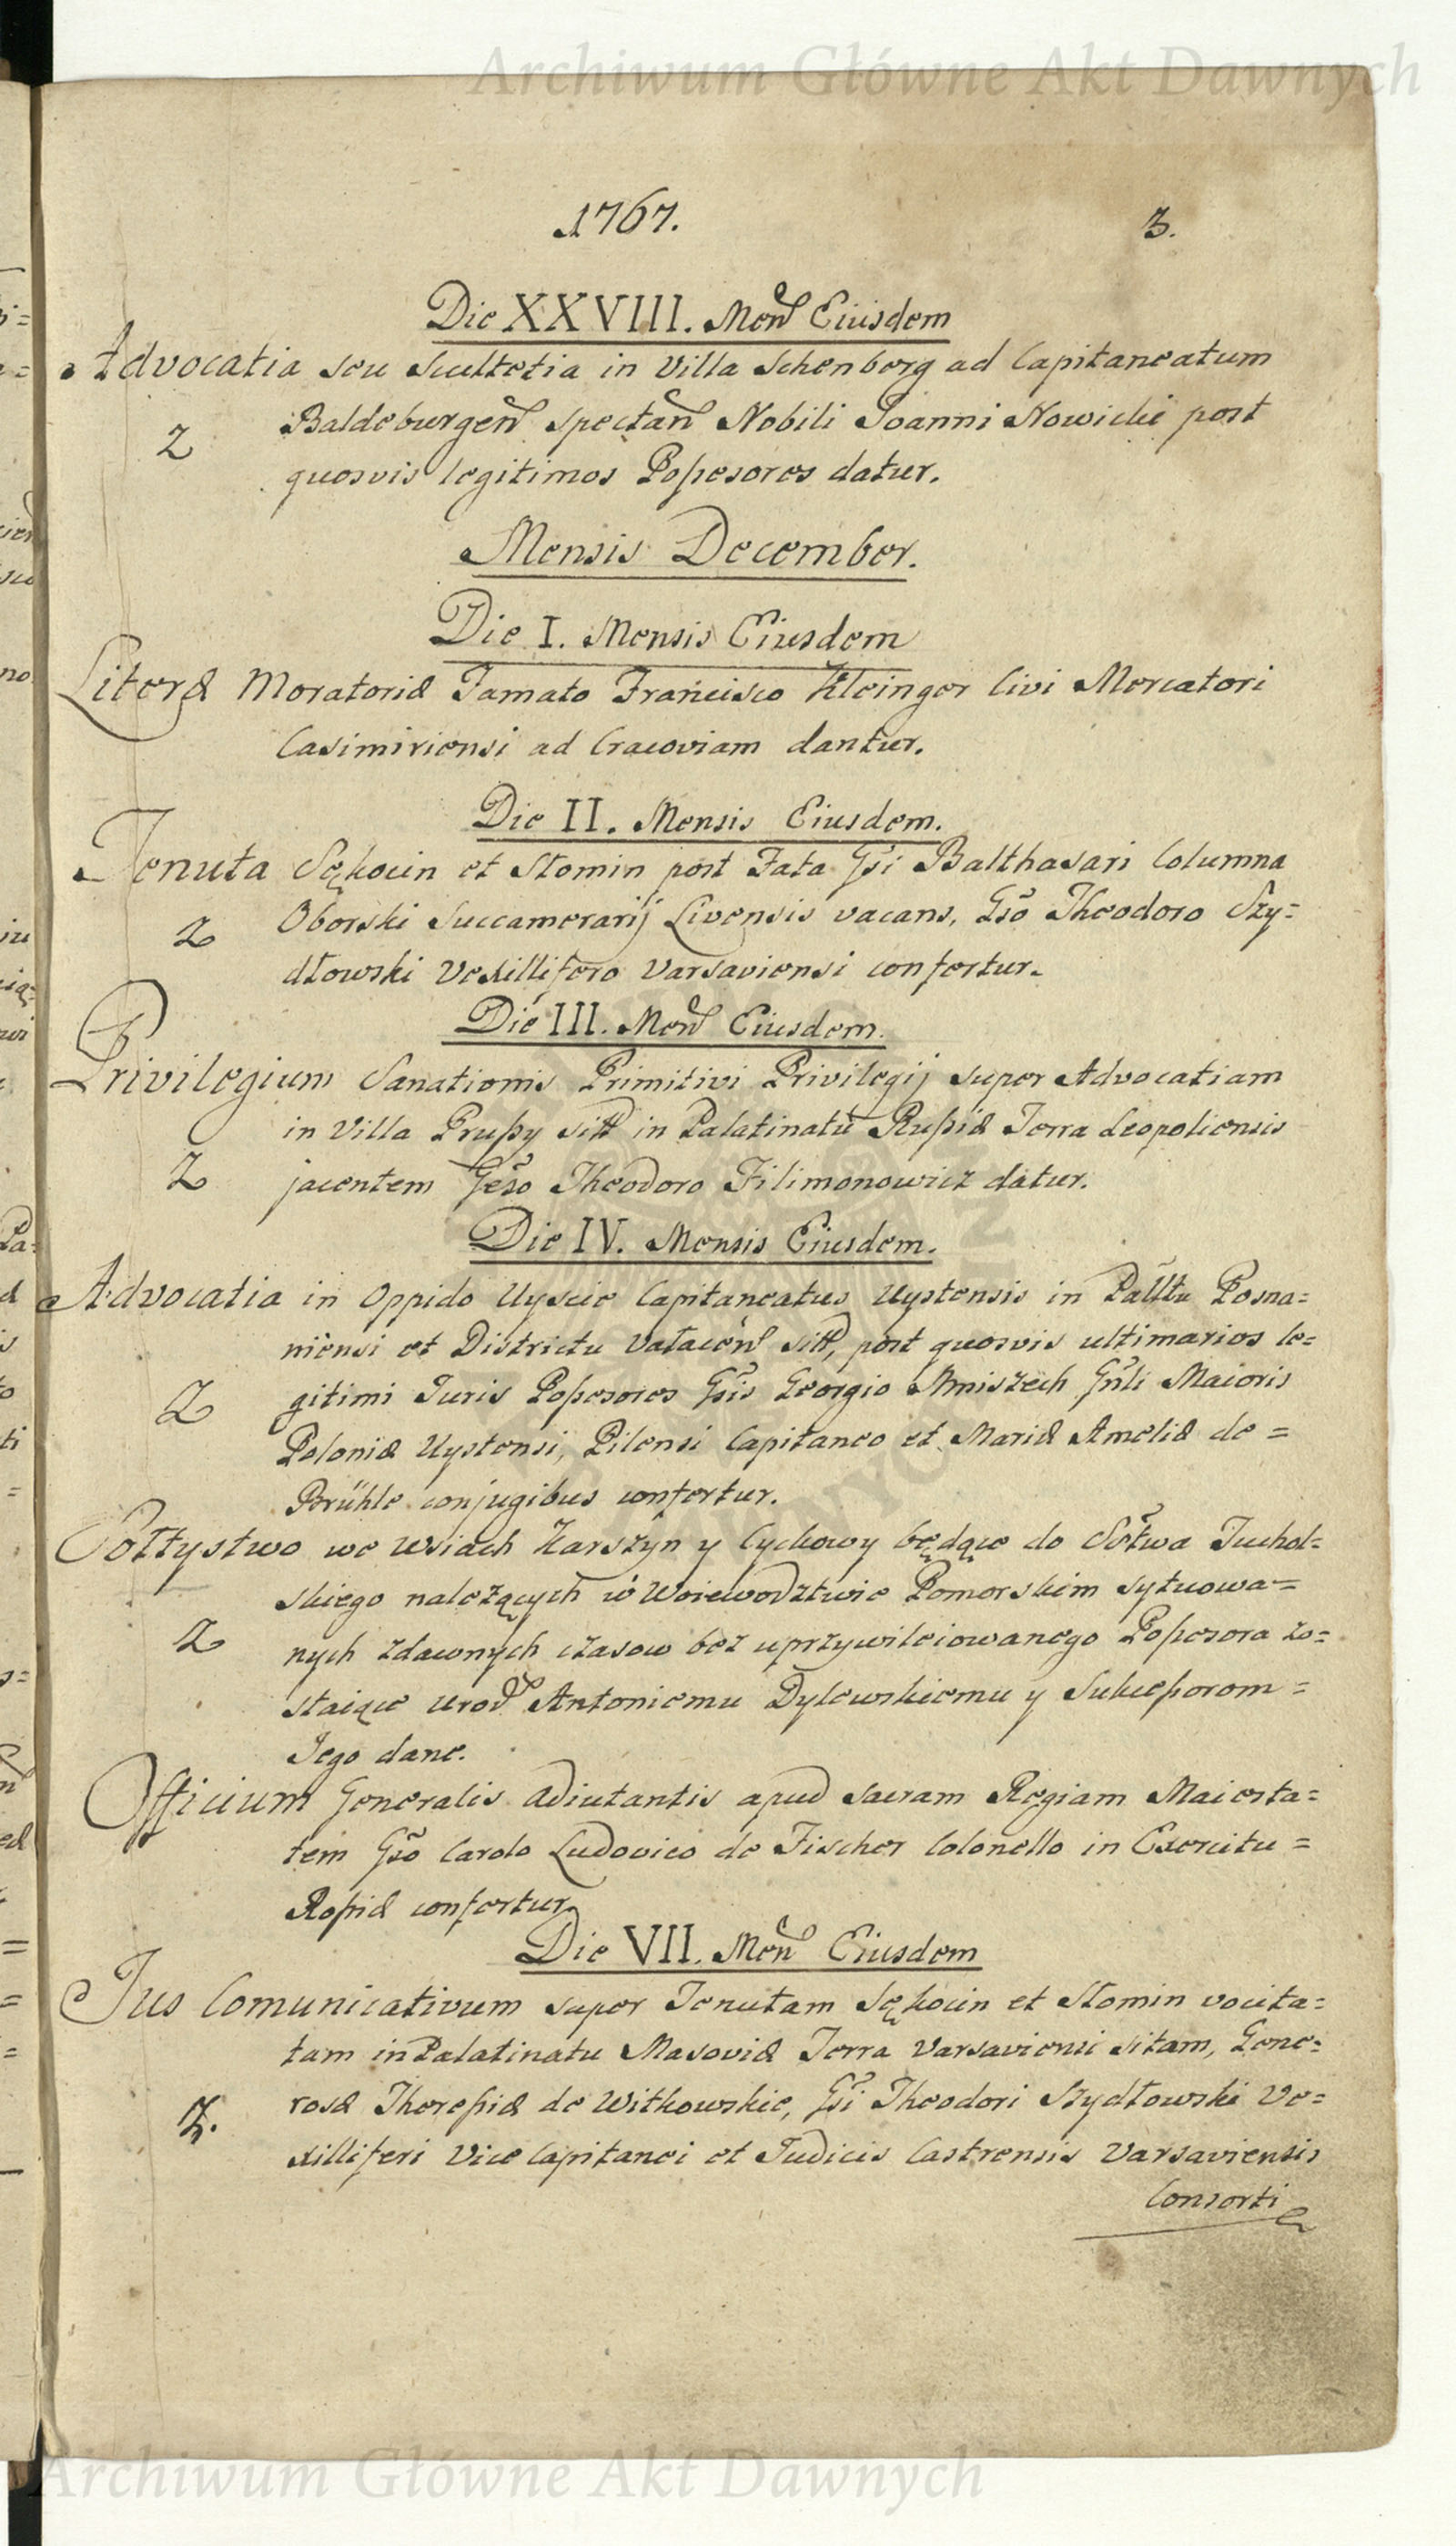 Archiwum Główne Akt Dawnych
1767.
3.
Die XXVIII. Men Eiusdem
Advocatia seu Scultetia in Villa Schenberg ad Capitaneatum
Baldeburgen spectan Nobili Joanni Nowicki post
2
quosvis legitimos Possesores datur.
Mensis December.
Die I. Mensis Eiusdem
Literæ Moratoriæ Famato Francisco Kleinger Civi Mercatori
Casimiriensi ad Cracoviam dantur.
Die II. Mensis Eiusdem.
Tenuta Sękocin et Słomin post Fata Gsi Balthasari Columna
Oborski Succamerarij Livensis vacans, Gso Theodoro Szy=
2
dłowski Vexillifero Varsaviensi confertur.
Die III. Men Eiusdem.
Privilegium Sanationis Primitivi Privilegij super Advocatiam
in Villa Prussy sitt in Palatinatu Russiæ Terra Leopoliensis
2
jacentem Geso Theodoro Filimonowicz datur.
Die IV. Mensis Eiusdem.
Advocatia in Oppido Uyscie Capitaneatus Uystensis in Palttu Posna=
niensi et Districtu Valacen sitt, post quosvis ultimarios le=
2
gitimi Juris Possesores Gsis Georgio Mniszech Gnli Maioris
Poloniæ Uystensi, Pilensi Capitaneo et Mariæ Ameliæ de =
Brühle conjugibus confertur.
Sołtystwo we Wsiach Karszyn y Cyckowy będące do Sotwa Tuchol=
skiego należących w Woiewodztwie Pomorskim sytuowa=
2
nych zdawnych czasow bez uprzywileiowanego Possesora zo=
staiące urod Antoniemu Dylewskiemu y Sukcessorom =
Jego dane.
Officium Generalis Adiutantis apud Sacram Regiam Maiesta=
tem Gso Carolo Ludovico de Fischer Colonello in Exercitu =
Rossiæ confertur.
Die VII. Men Eiusdem
Jus Comunicativum super Tenutam Sękocin et Słomin vocita=
tam in Palatinatu Masoviæ Terra Varsaviensi sitam, Gene=
2.
rosæ Theressiæ de Witkowskie, Gsi Theodori Szydłowski Ve=
xilliferi Vice Capitanei et Judicis Castrensis Varsaviensis
Consorti
Archiwum Główne Akt Dawnych